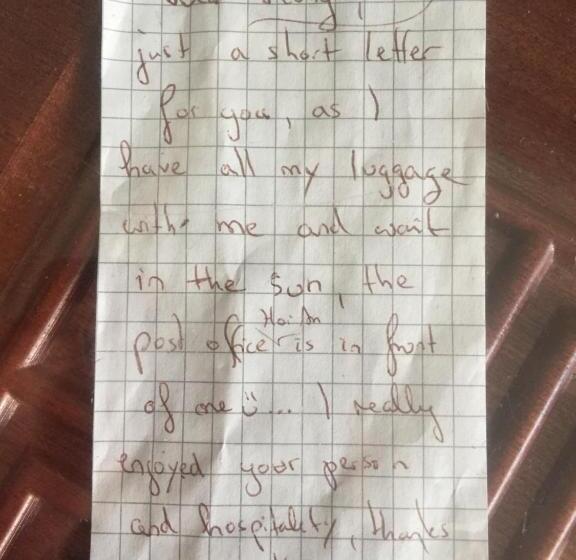 just a short letter
for you, as I
have all my luggage
with me and wait
in the sun, the
Hoi An
post office is in front
of me ü... I really
enjoyed your person
and hospitality, thanks